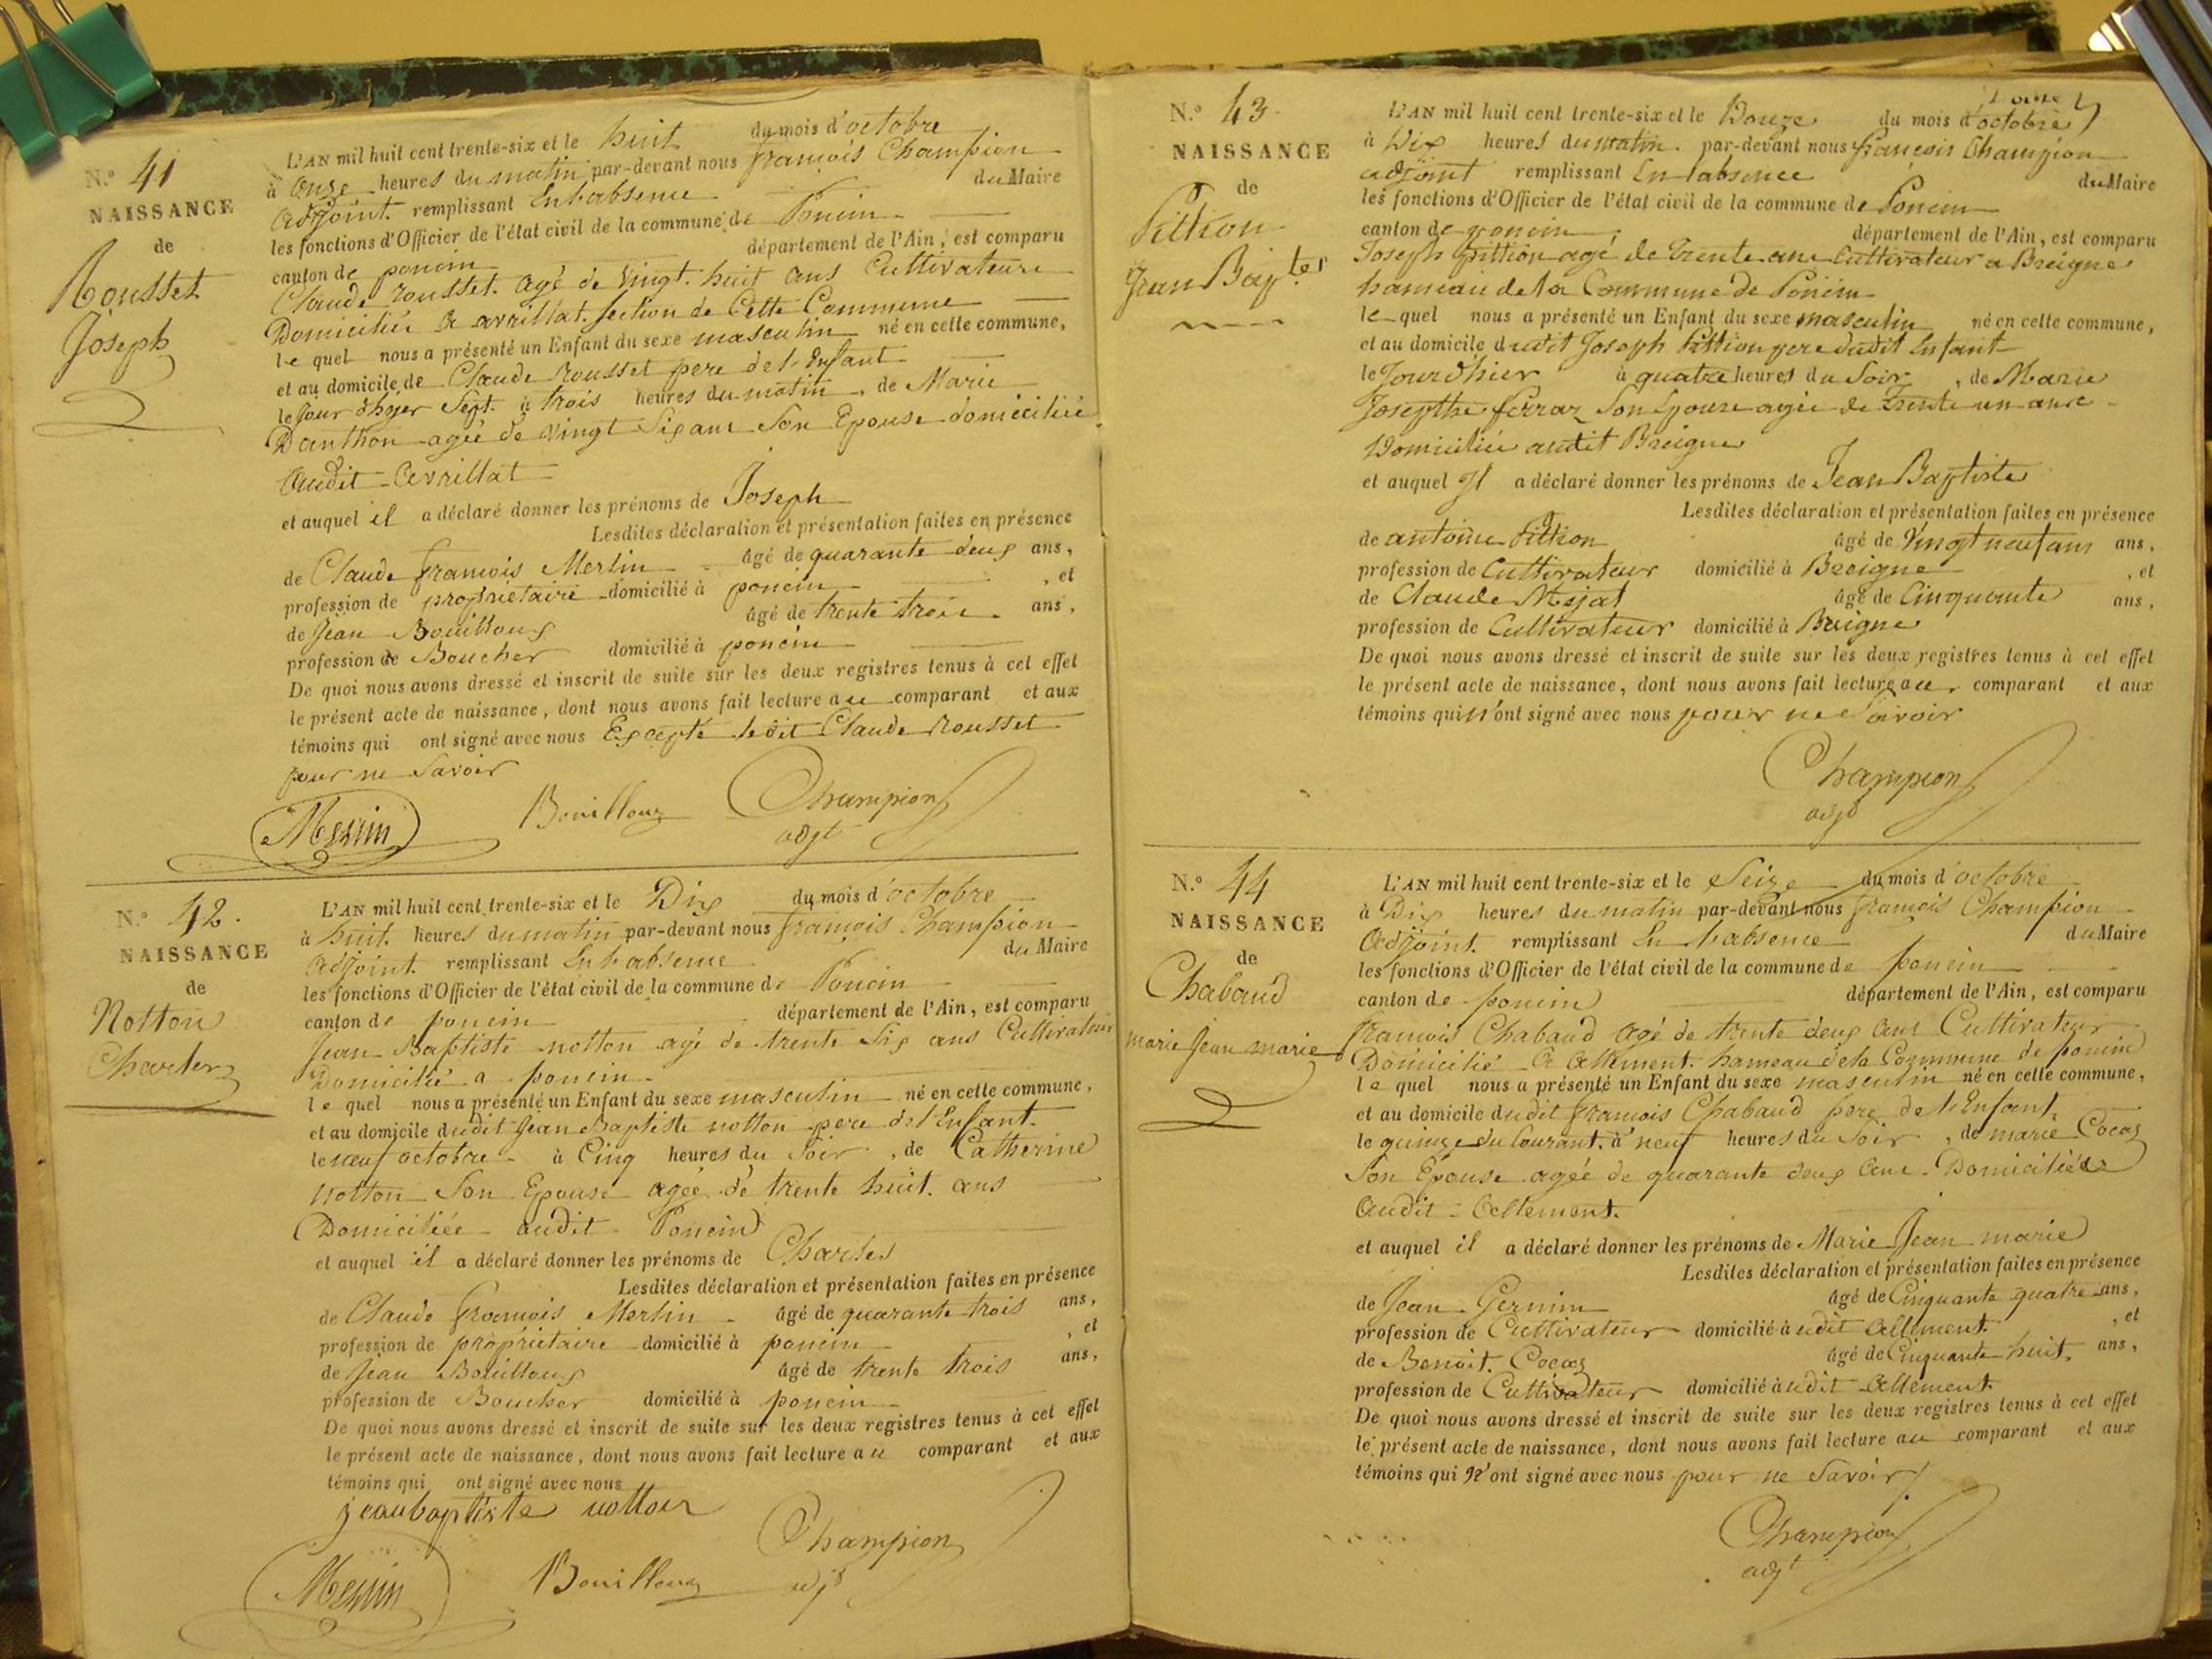 N.o 41
NAISSANCE
de
Rousset
Joseph
L'AN mil huit cent trente-six et le huit du mois d'octobre
à Onze heures du matin par-devant nous françois Champion
adjoint remplissant En l'absence du Maire
les fonctions d'Officier de l'état civil de la commune de Poncin
canton de poncin département de l'Ain, est comparu
Claude rousset agé de vingt huit ans Cultivateur
Domicilié a avrillat Section de Cette Commune
le quel nous a présenté un Enfant du sexe masculin né en cette commune,
et au domicile de Claude rousset pere de l'Enfant
le Jour d'hyer Sept à trois heures du matin, de Marie
Danthon agée de vingt Six ans Son Epouse domiciliée
audit avrillat
et auquel il a déclaré donner les prénoms de Joseph
Lesdites déclaration et présentation faites en présence
de Claude françois Merlin âgé de quarante deux ans,
profession de propriétaire domicilié à poncin , et
de Jean Bouilloux âgé de trente trois ans,
profession de Boucher domicilié à poncin
De quoi nous avons dressé et inscrit de suite sur les deux registres tenus à cet effet
le présent acte de naissance, dont nous avons fait lecture au comparant et aux
témoins qui ont signé avec nous Excepté ledit Claude rousset
pour ne Savoir
Merlin Bouilloux Champion
adjt
N.o 42.
NAISSANCE
de
Notton
Charles
L'AN mil huit cent trente-six et le Dix du mois d'octobre
à huit heures du matin par-devant nous françois Champion
adjoint remplissant En l'absence du Maire
les fonctions d'Officier de l'état civil de la commune de Poncin
canton de poncin département de l'Ain, est comparu
Jean Baptiste notton agé de trente Six ans Cultivateur
Domicilié a poncin
le quel nous a présenté un Enfant du sexe masculin né en cette commune,
et au domicile dudit Jean Baptiste notton pere de l'Enfant
le neuf octobre à Cinq heures du Soir, de Catherine
notton Son Epouse agée de trente huit ans
Domiciliée audit Poncin
et auquel il a déclaré donner les prénoms de Charles
Lesdites déclaration et présentation faites en présence
de Claude françois Merlin âgé de quarante trois ans,
profession de propriétaire domicilié à poncin , et
de Jean Bouilloux âgé de trente trois ans,
profession de Boucher domicilié à poncin
De quoi nous avons dressé et inscrit de suite sur les deux registres tenus à cet effet
le présent acte de naissance, dont nous avons fait lecture au comparant et aux
témoins qui ont signé avec nous
jeanbaptiste notton
Merlin Bouilloux Champion
adjt
N.o 43.
NAISSANCE
de
Pittion
Jean Bap.te
L'AN mil huit cent trente-six et le Douze du mois d'octobre
à Dix heures du matin par-devant nous françois Champion
adjoint remplissant En l'absence du Maire
les fonctions d'Officier de l'état civil de la commune de Poncin
canton de poncin département de l'Ain, est comparu
Joseph pittion agé de trente ans Cultivateur a Breigne
hameau de la Commune de Poncin
le quel nous a présenté un Enfant du sexe masculin né en cette commune,
et au domicile dudit Joseph Pittion pere dudit Enfant
le Jour d'hier à quatre heures du Soir, de Marie
Josepthe ferraz Son Epouse agée de trente un ans
Domiciliée audit Breigne
et auquel Il a déclaré donner les prénoms de Jean Baptiste
Lesdites déclaration et présentation faites en présence
de antoine Pittion âgé de Vingt neuf ans ans,
profession de Cultivateur domicilié à Breigne , et
de Claude Mejat âgé de Cinquante ans,
profession de Cultivateur domicilié à Breigne
De quoi nous avons dressé et inscrit de suite sur les deux registres tenus à cet effet
le présent acte de naissance, dont nous avons fait lecture au comparant et aux
témoins qui n'ont signé avec nous pour ne Savoir
Champion
adjt
N.o 44
NAISSANCE
de
Chabaud
marie Jean marie
L'AN mil huit cent trente-six et le Seize du mois d'octobre
à Dix heures du matin par-devant nous françois Champion
adjoint remplissant En l'absence du Maire
les fonctions d'Officier de l'état civil de la commune de poncin
canton de poncin département de l'Ain, est comparu
françois Chabaud agé de trente deux ans Cultivateur
Domicilié a allement hameau de la Commune de poncin
le quel nous a présenté un Enfant du sexe masculin né en cette commune,
et au domicile dudit françois Chabaud pere de l'Enfant
le quinze du Courant à neuf heures du Soir, de marie Cocaz
Son Epouse agée de quarante deux ans Domiciliée
audit allement
et auquel il a déclaré donner les prénoms de Marie Jean marie
Lesdites déclaration et présentation faites en présence
de Jean Germin âgé de Cinquante quatre ans,
profession de Cultivateur domicilié à udit allement , et
de Benoit Cocaz âgé de Cinquante huit ans,
profession de Cultivateur domicilié à udit allement
De quoi nous avons dressé et inscrit de suite sur les deux registres tenus à cet effet
le présent acte de naissance, dont nous avons fait lecture au comparant et aux
témoins qui n'ont signé avec nous pour ne Savoir
Champion
adjt